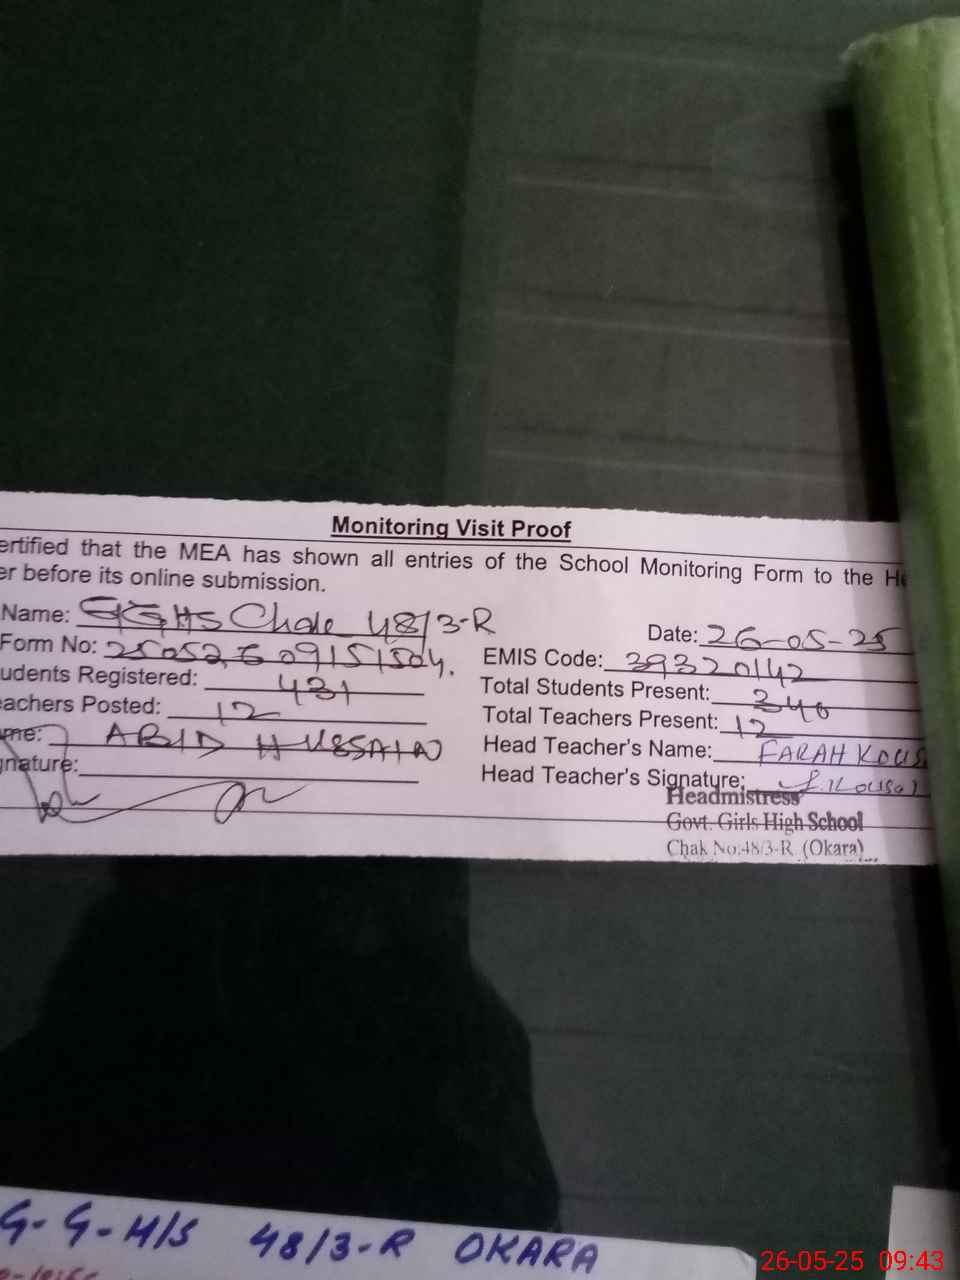 Monitoring Visit Proof
ertified that the MEA has shown all entries of the School Monitoring Form to the He
er before its online submission.
Name: GGHS Chak 48/3-R
Date: 26-05-25
Form No: 25052609151504.
EMIS Code: 39320142
udents Registered: 431
Total Students Present: 346
eachers Posted: 12
Total Teachers Present: 12
me: ABID HUSSAIN
Head Teacher's Name: FARAH KOUS
gnature:
Head Teacher's Signature: f. Kousar
Headmistress
Govt. Girls High School
Chak No:48/3-R (Okara)
G-G-H/S 48/3-R OKARA
26-05-25 09:43